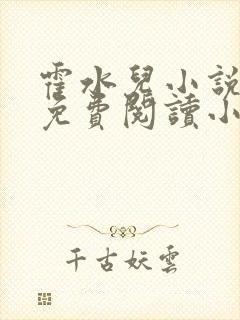 霍水兒小說
免費閱讀小
千古妖雲